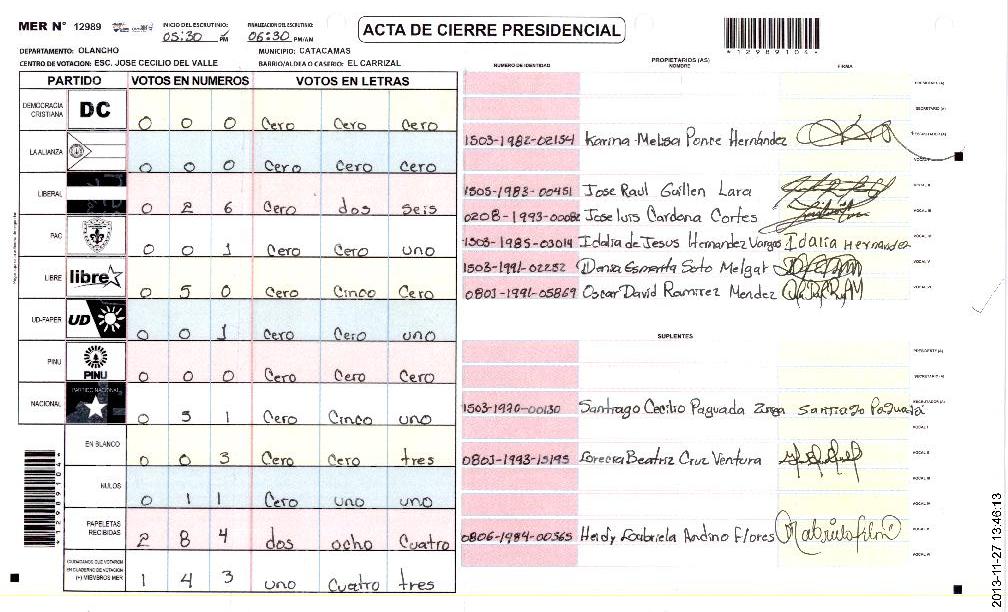 MER N° 12989
INICIO DEL ESCRUTINIO: 05:30 PM
FINALIZACION DEL ESCRUTINIO: 06:30 PM/AM
ACTA DE CIERRE PRESIDENCIAL
*12989104*
DEPARTAMENTO: OLANCHO
MUNICIPIO: CATACAMAS
CENTRO DE VOTACION: ESC. JOSE CECILIO DEL VALLE
BARRIO/ALDEA O CASERIO: EL CARRIZAL
PARTIDO VOTOS EN NUMEROS VOTOS EN LETRAS
DEMOCRACIA CRISTIANA DC 0 0 0 Cero Cero Cero
LA ALIANZA 0 0 0 Cero Cero Cero
LIBERAL 0 2 6 Cero dos Seis
PAC 0 0 1 Cero Cero uno
LIBRE libre 0 5 0 Cero Cinco Cero
UD-FAPER UD 0 0 1 Cero Cero uno
PINU PINU 0 0 0 Cero Cero Cero
NACIONAL PARTIDO NACIONAL 0 5 1 Cero Cinco uno
EN BLANCO 0 0 3 Cero Cero tres
NULOS 0 1 1 Cero uno uno
PAPELETAS RECIBIDAS 2 8 4 dos ocho Cuatro
CIUDADANOS QUE VOTARON EN CUADERNO DE VOTACION (+) MIEMBROS MER 1 4 3 uno Cuatro tres
*12989104*
PROPIETARIOS (AS)
NUMERO DE IDENTIDAD NOMBRE FIRMA
PRESIDENTE (A)
SECRETARIO (A)
1503-1982-02154 Karina Melisa Ponce Hernández ESCRUTADOR (A)
VOCAL I
1505-1983-00451 Jose Raul Guillen Lara VOCAL II
0208-1993-00082 Jose Luis Cardona Cortes VOCAL III
1503-1985-03014 Idalia de Jesus Hernandez Vargas Idalia Hernandez VOCAL IV
1503-1991-02252 Soto Melgar VOCAL V
0801-1991-05869 Oscar David Ramirez Mendez VOCAL VI
SUPLENTES
PRESIDENTE (A)
SECRETARIO (A)
1503-1970-00130 Santiago Cecilio Paguada Santiago Paguada ESCRUTADOR (A)
VOCAL I
0801-1993-15195 Beatriz Cruz Ventura VOCAL II
VOCAL III
VOCAL IV
0806-1984-00365 Heidy Gabriela Andino Flores VOCAL V
VOCAL VI
2013-11-27 13:46:13